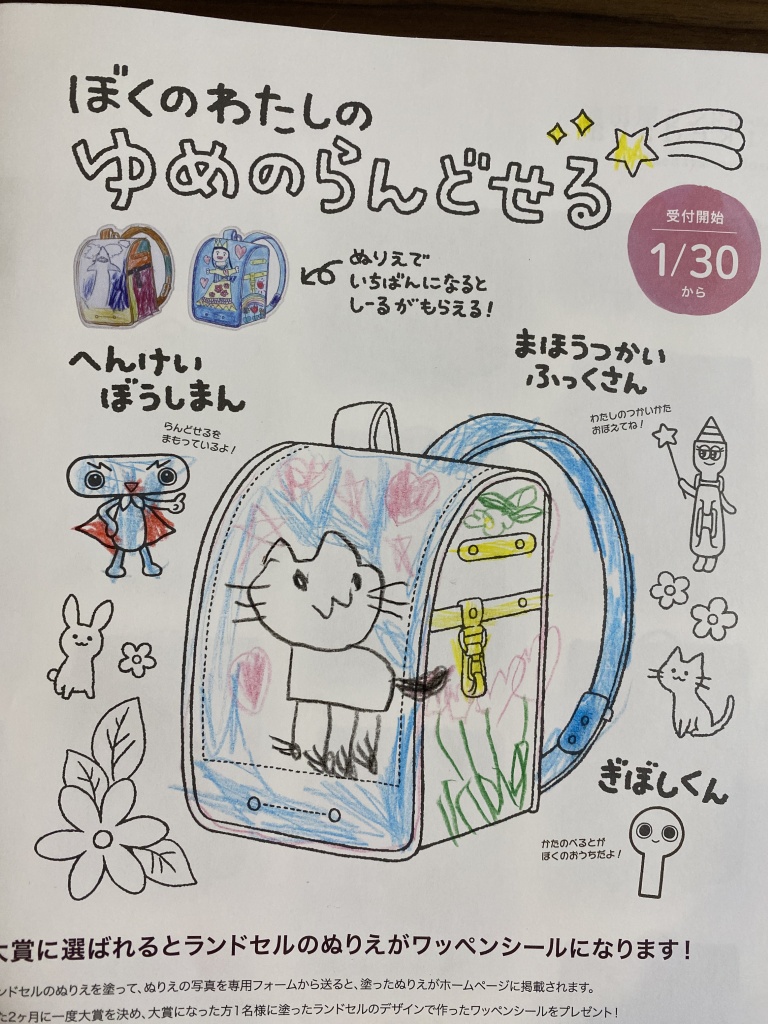 ぼくのわたしの
ゆめのらんどせる
受付開始
1/30
から
ぬりえで
いちばんになると
しーるがもらえる!
へんけい
ぼうしまん
らんどせるを
まもっているよ!
まほうつかい
ふっくさん
わたしのつかいかた
おぼえてね!
ぎぼしくん
かたのべるとが
ぼくのおうちだよ!
大賞に選ばれるとランドセルのぬりえがワッペンシールになります!
ンドセルのぬりえを塗って、ぬりえの写真を専用フォームから送ると、塗ったぬりえがホームページに掲載されます。
た2ヶ月に一度大賞を決め、大賞になった方1名様に塗ったランドセルのデザインで作ったワッペンシールをプレゼント!